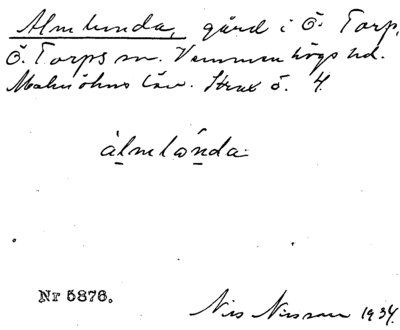 Almlunda, gård i Ö. Torp,
Ö. Torps sn. Vemmenhögs hd.
Malmöhus län. Strax ö. 4.
àlmlònda
Nr 5876.
Nils Nilsson 1934.